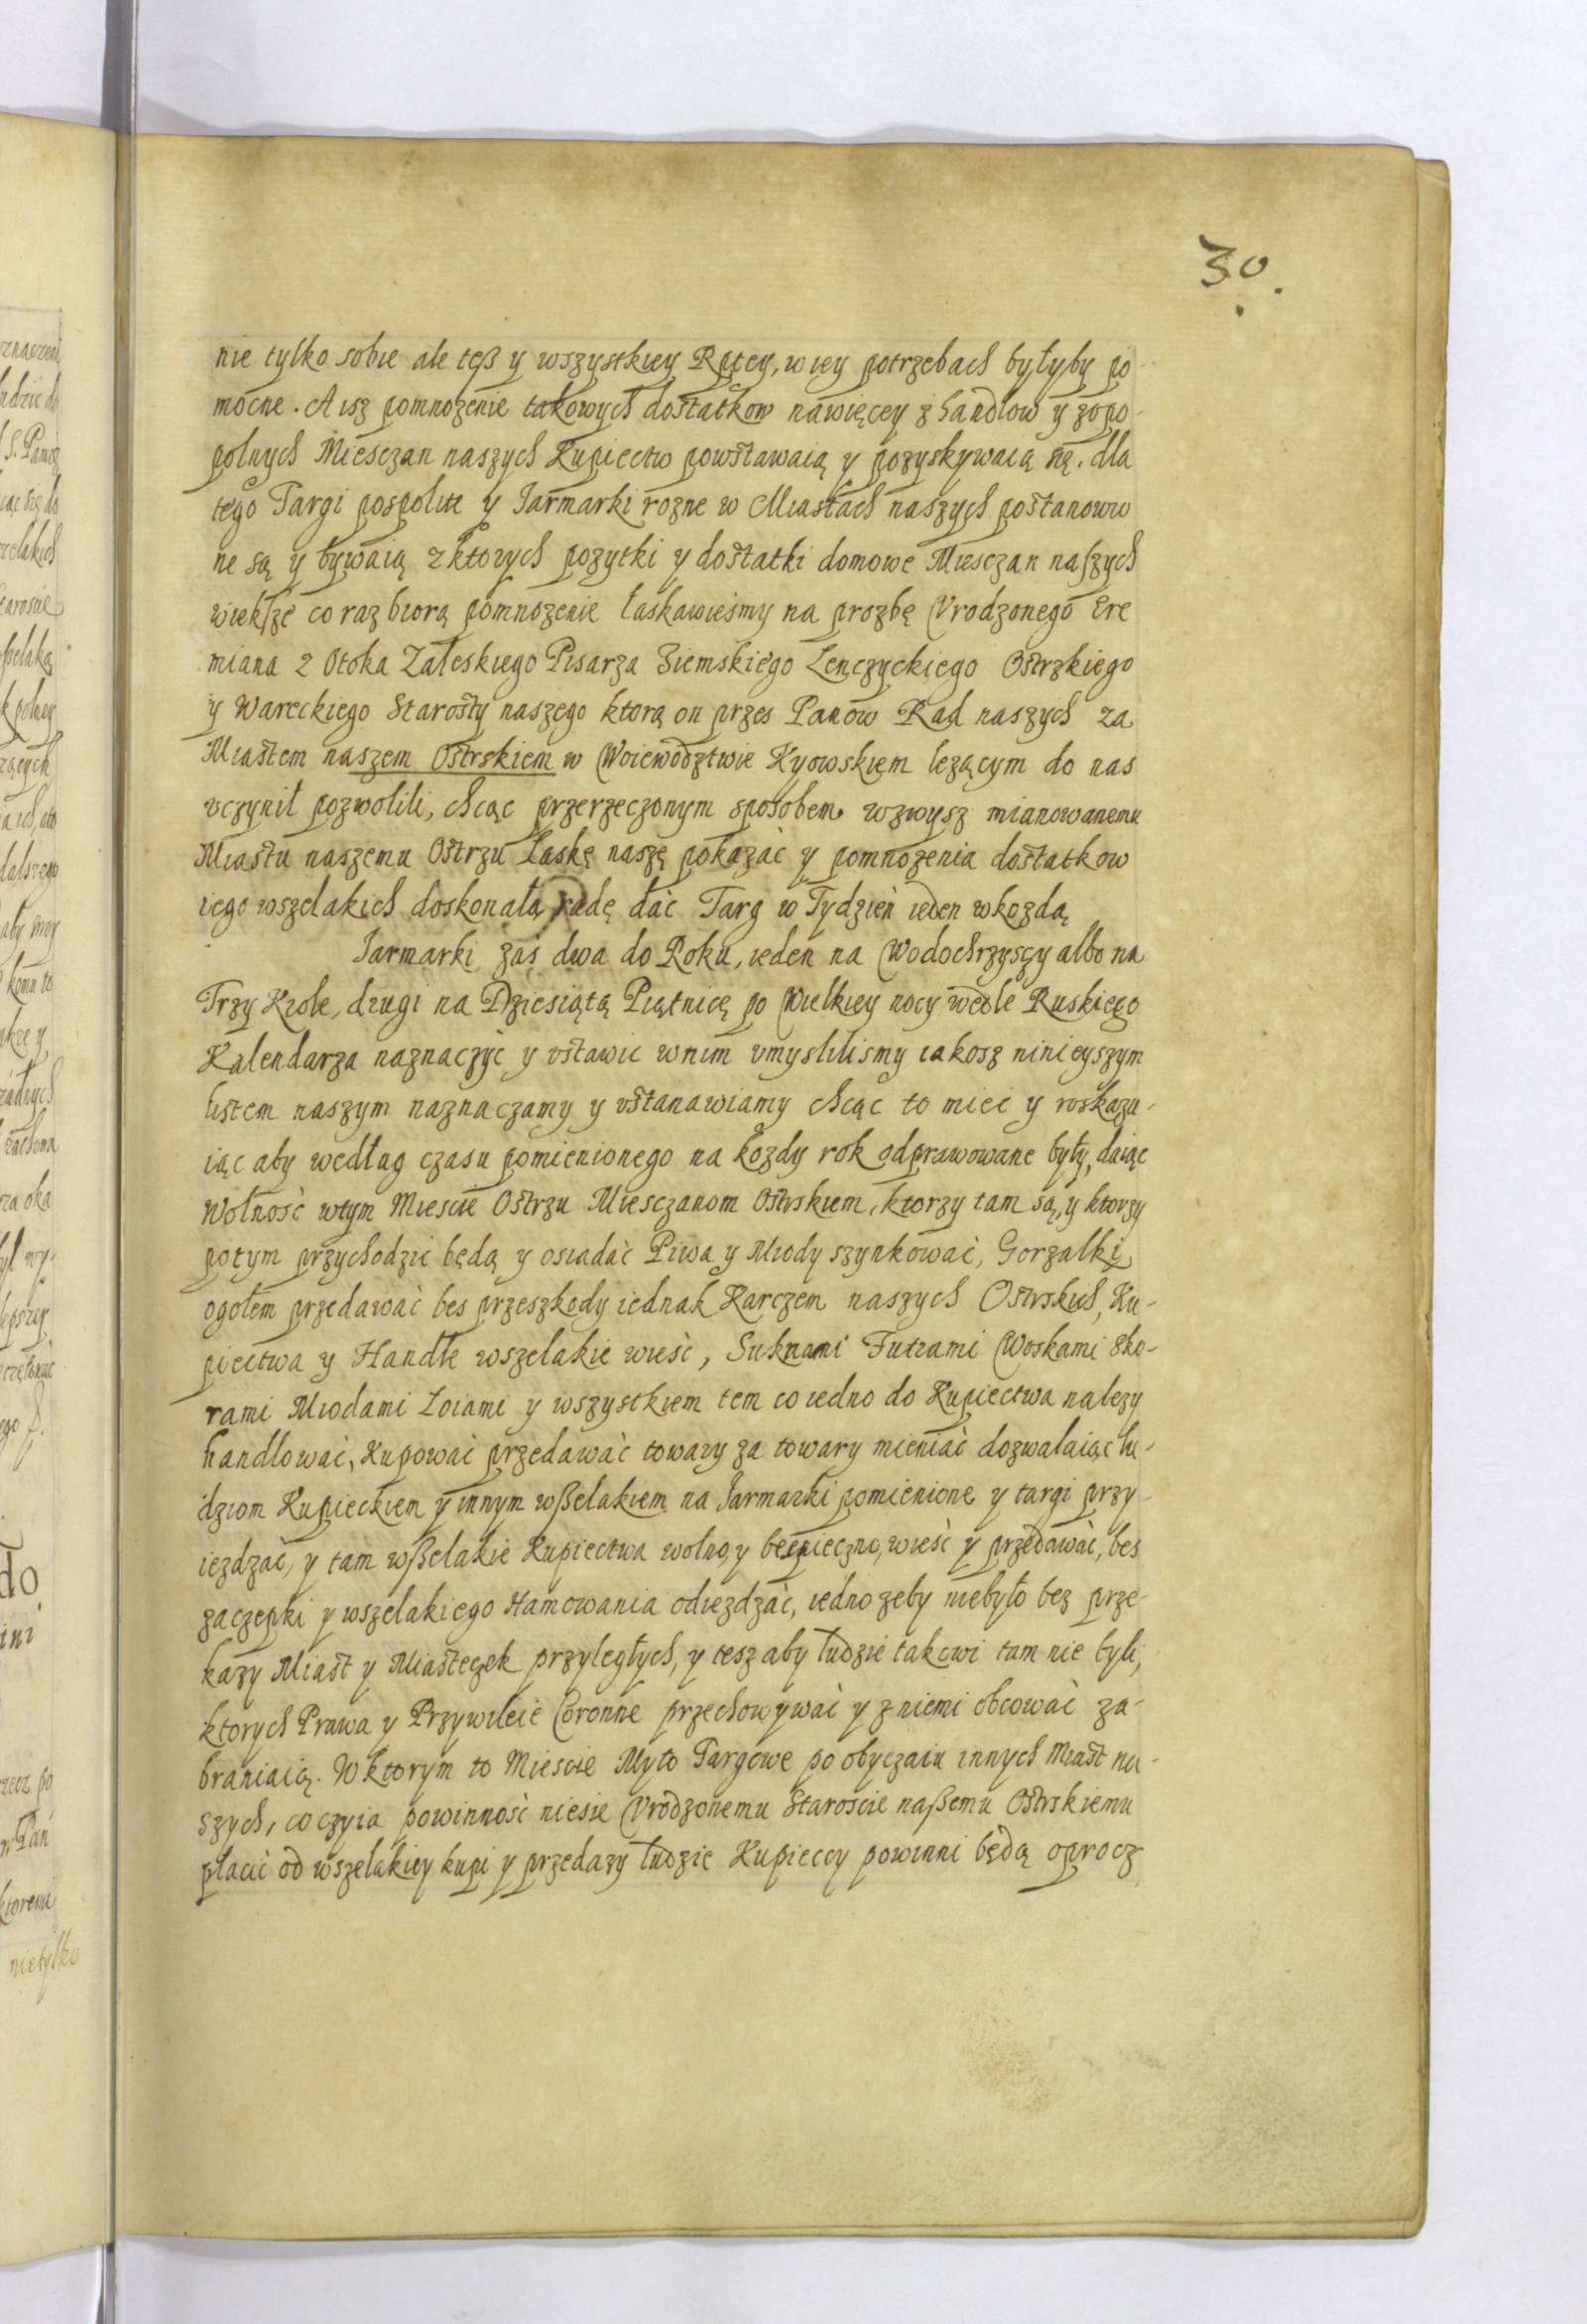 30.
nie tylko sobie ale teß y wszystkiey Rptey, w iey potrzebach byłyby po-
mocne. A isz pomnozenie takowych dostatkow nawięcey z handlow y zopo-
polnych Miesczan naszych Kupiectw powstawaią y pozyskywaią są. dla
tego Targi pospolite y Jarmarki rozne w Miastach naszych postanowio
ne są y bywaią z ktorych pozytki y dostatki domowe Miesczan naszych
wieksze co raz biorą pomnozenie łaskawieśmy na prozbę Vrodzonego Ere
miana z Otoka Zaleskiego Pisarza Ziemskiego Lenczyckiego Ostrzkiego
y Wareckiego Starosty naszego ktorą on przes Panow Rad naszych za
Miastem naszem Ostrskiem w Woiewodztwie Kyowskiem lezącym do nas
vczynił pozwolili, chcąc przerzeczonym sposobem wzwysz mianowanemu
Miastu naszemu Ostrzu Łaskę naszę pokazać y pomnozenia dostatkow
iego wszelakich doskonałą radę dać Targ w Tydzień ieden wkozdą
Jarmarki zaś dwa do Roku, ieden na Wodochrzysczy albo na
Trzy Krole, drugi na Dziesiątą Piątnicę po Wielkiey nocy wedle Ruskiego
Kalendarza naznaczyć y vstawic wnim vmyslilismy iakosz ninieyszym
listem naszym naznaczamy y vstanawiamy chcąc to mieć y roskazu-
iąc aby według czasu pomienionego na kozdy rok odprawowane były, daiąc
wolność wtym Miescie Ostrzu Miesczanom Ostrskiem, ktorzy tam są, y ktorzy
potym przychodzić będą y osiadać Piwa y Miody szynkować, Gorzalki
ogołem przedawać bes przeszkody iednak Karczem naszych Ostrskich, Ku-
piectwa y Handle wszelakie wieść, Suknami Futrami Woskami sko-
rami Miodami Łoiami y wszystkiem tem co iedno do Kupiectwa nalezy
handlować, Kupować przedawać towary za towary mieniać dozwalaiąc lu-
dziom Kupieckiem y innym wßelakiem na Jarmarki pomienione y targi przy-
iezdzać, y tam wßelakie Kupiectwa wolno, y bespieczno, wieść y przedawać, bes
zaczepki y wszelakiego Hamowania odiezdzać, iedno zeby niebyło bez prze-
kazy Miast y Miasteczek przyległych, y tesz aby ludzie takowi tam nie byli,
ktorych Prawa y Przywileie Coronne przechowywać y z niemi obcować za-
braniaią. W ktorym to Miescie Myto Targowe po obyczaiu innych Miast na-
szych, co czyia powinność niesie Vrodzonemu Staroscie naßemu Ostrskiemu
płacić od wszelakiey kupi y przedazy ludzie Kupieccy powinni będą oprocz